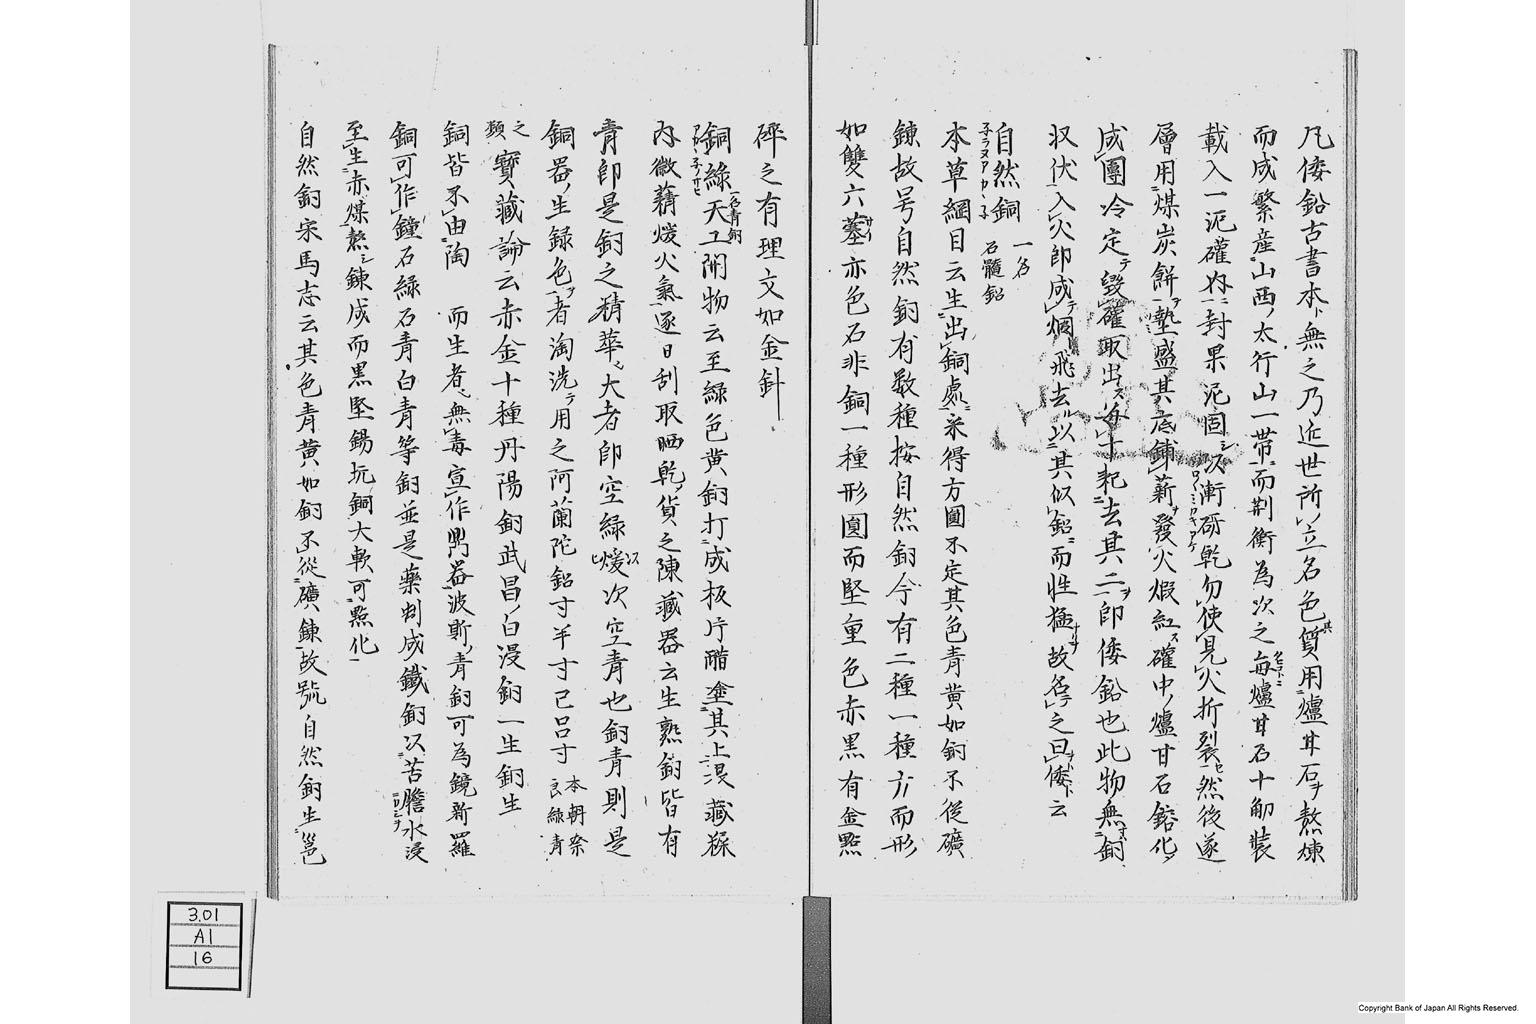 凡倭鉛古書本ト無之乃近世所立名色其質用爐甘石ヲ熬煉
而成繁産山西ノ太行山一帶而荆衡為次之毎爐甘石十觔装
載入一泥確内ニ封果泥固シ次漸硏乾勿使見火折裂セ然後遂
層用煤炭餅ヲ墊盛其底鋪薪ヲ發火煆紅ス確中ノ爐甘石鎔化
成團冷定テ毀確取出ス毎十耗去其二ヲ即倭鉛也此物無銅
収伏入火即成テ烟飛去以其似鉛而性猛故名テ之曰倭ト云
自然銅 一名 石髓鉛
本草綱目云生出銅處采得方圓不定其色青黄如銅不從礦
錬故号自然銅有數種按自然銅今有二種一種方而形
如雙六亦色石非銅一種形圓而堅重色赤黒有金點
碎之有理文如金針
銅綠 一名青銅 天工開物云至綠色黄銅打成板片醋塗其上
内微藉煖火氣逐日刮取晒乾貨之陳藏器云生熟銅皆有
青即是銅之精華大者即空綠次空青也銅青則是
銅器ノ生緑色ヲ者淘洗テ用之阿蘭陀
之類 寶藏論云赤金十種丹陽銅武昌ノ白漫銅一生銅生
銅皆不由陶 而生者無毒宣作鼎器波斯青銅可為鏡新羅
銅可作鐘石綠石青白青等銅並是藥制成鐵銅以苦膽水浸
至生赤煤熬シ錬成而黒堅錫坑銅大軟可點化
自然銅宋馬志云其色青黄如銅不從礦錬故號自然銅生邕
3.01
A1
16
Copyright Bank of Japan All Rights Reserved.